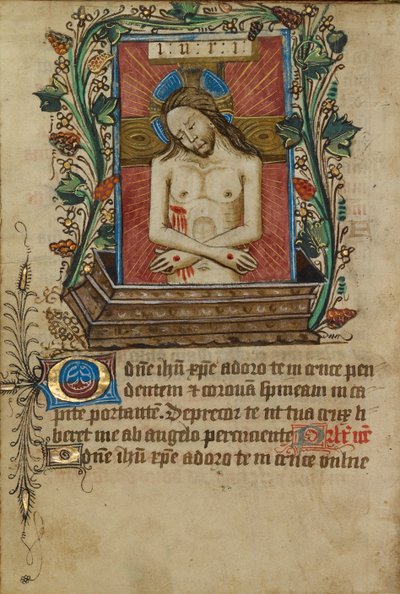 i·n·r·i
O dn̄e ihū xp̄e adoro te in cruce pen
dentem ⁊ coronā spineam in ca
pite portantē. Deprecor te ut tua crux li
beret me ab angelo percutiente
O dn̄e ihū xp̄e adoro te in cruce vulne